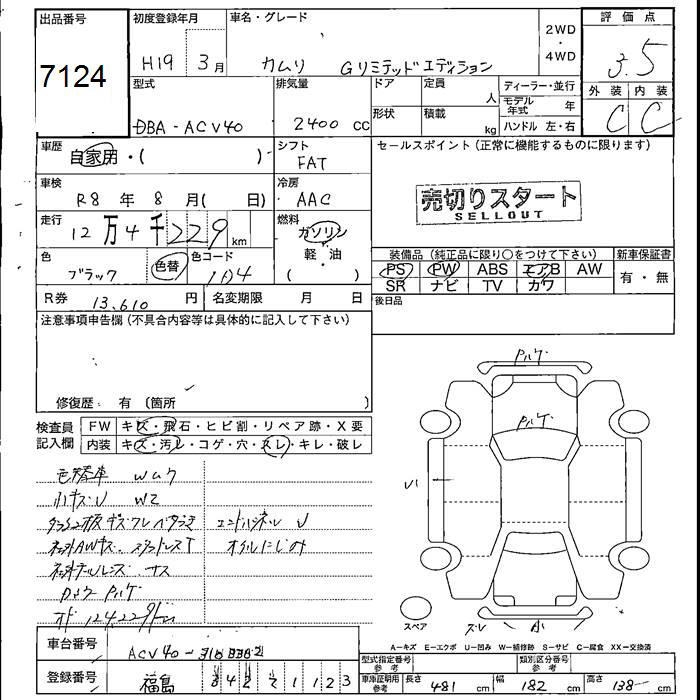 出品番号
7124
初度登録年月
H19 3月
車名・グレード
カムリ Gリミテッドエディション
2WD
・
4WD
評価点
3.5
型式
DBA-ACV40
排気量
2400 cc
ドア
定員
人
形状
積載
kg
ディーラー・並行
モデル年式 年
ハンドル 左・右
外装 内装
C C
車歴
自家用・( )
シフト
FAT
セールスポイント(正常に機能するものに限ります)
車検
R8 年 8 月( 日)
冷房
AAC
売切りスタート
SELLOUT
走行
12万4千229km
燃料
ガソリン
軽・油
( )
色
ブラック
色替
色コード
1D4
装備品(純正品に限り○をつけて下さい)
新車保証書
PS PW ABS エアB AW
SR ナビ TV カワ
有・無
R券 13,610 円
名変期限 月 日
後日品
注意事項申告欄(不具合内容等は具体的に記入して下さい)
修復歴: 有(箇所 )
検査員記入欄
FW キズ・飛石・ヒビ割・リペア跡・X要
内装 キズ・汚レ・コゲ・穴・スレ・キレ・破レ
小キズU W2
オイルにじみ
スペア
A−キズ E−エクボ U−凹み W−補修跡 S−サビ C−腐食 XX−交換済
車台番号
ACV40-
登録番号
福島
型式指定番号 参考
類別区分番号 参考
車庫証明用 参考
長さ 481 cm
幅 182 cm
高さ 138 cm